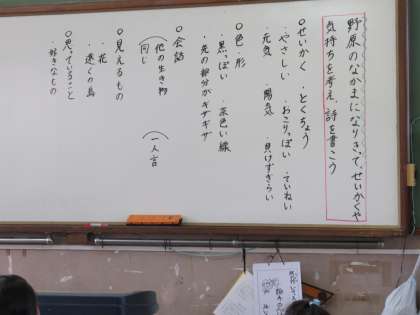 野原のなかまになりきって、せいかくや
気持ちを考え、詩を書こう
○せいかく とくちょう
・やさしい ・おこりっぽい ・ていねい
・元気 ・陽気 ・負けずぎらい
○色・形
・黒っぽい ・茶色い線
・先の部分がギザギザ
○会話
(他の生き物 (一人言
(同じ
○見えるもの
・花
・遠くの鳥
○思っていること
・好きなもの